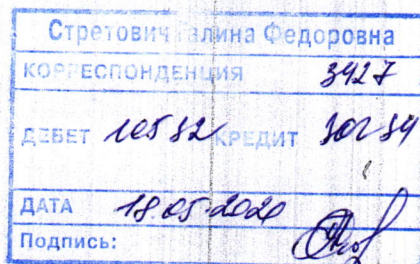 Стретович Галина Федоровна
КОРРЕСПОНДЕНЦИЯ 3427
ДЕБЕТ 10532 КРЕДИТ 30234
ДАТА 18.05.2020
Подпись: